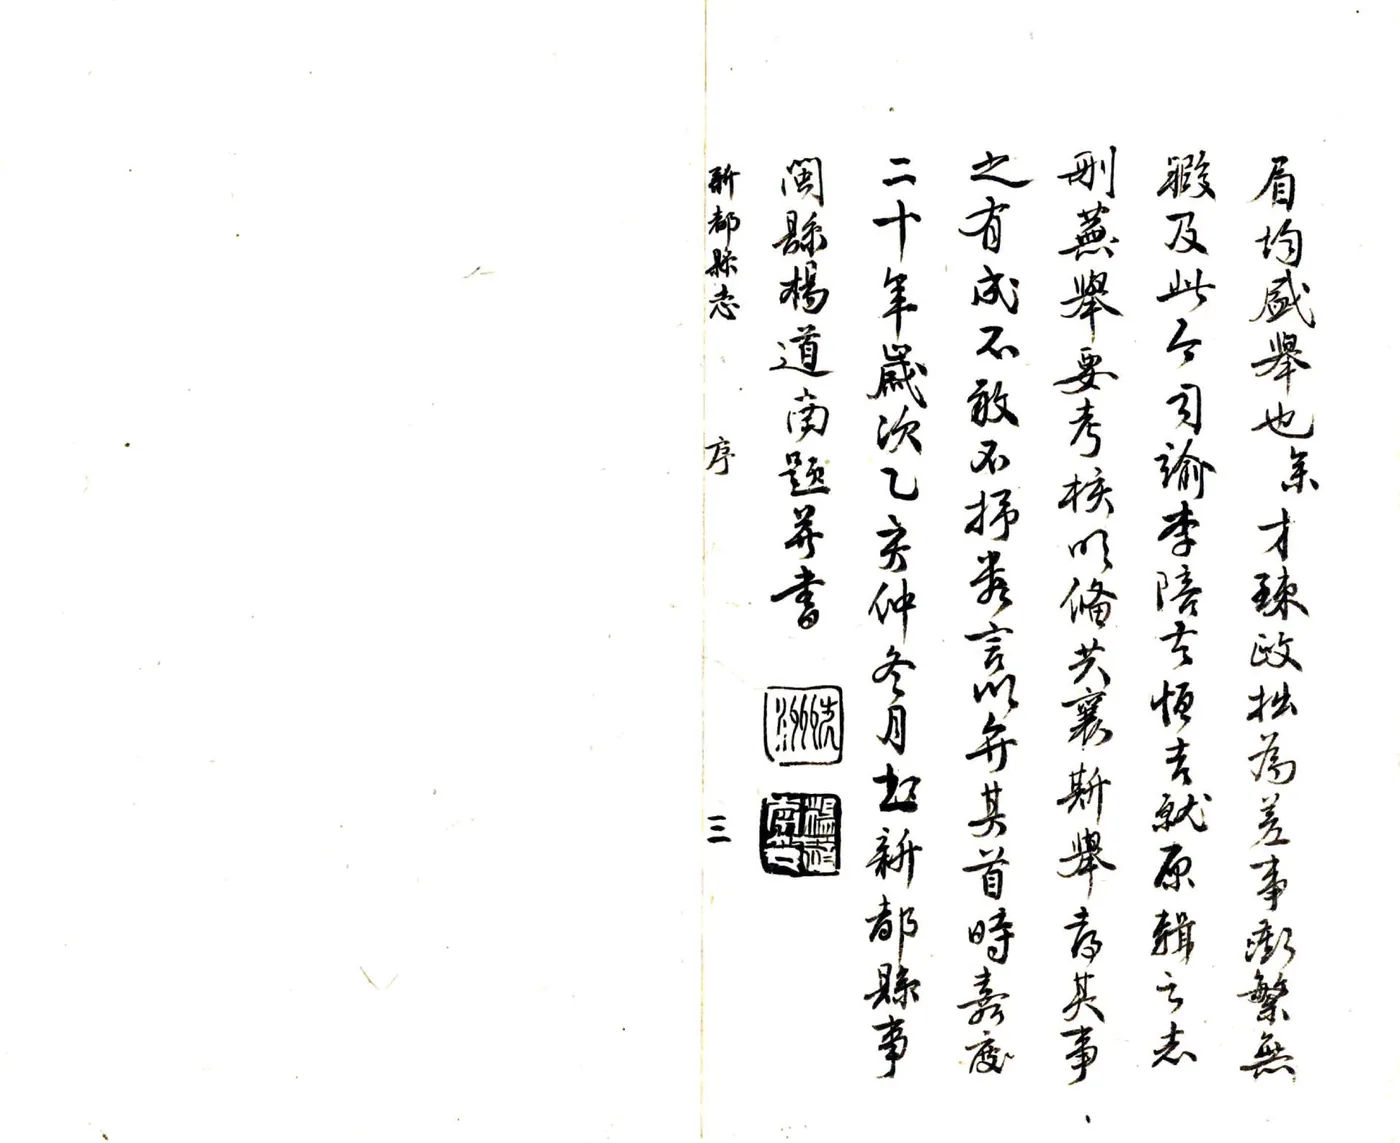 眉均盛舉也余才疎政拙為差事衝繁無
暇及此今司諭李陪恒吉就原輯之志
刪蕪舉要考核以備共襄斯舉其事
之有成不敢不抒數言以弁其首時嘉慶
二十年歲次乙亥仲冬月知新都縣事
閩縣楊道南題并書
楊道南印
新都縣志 序 三